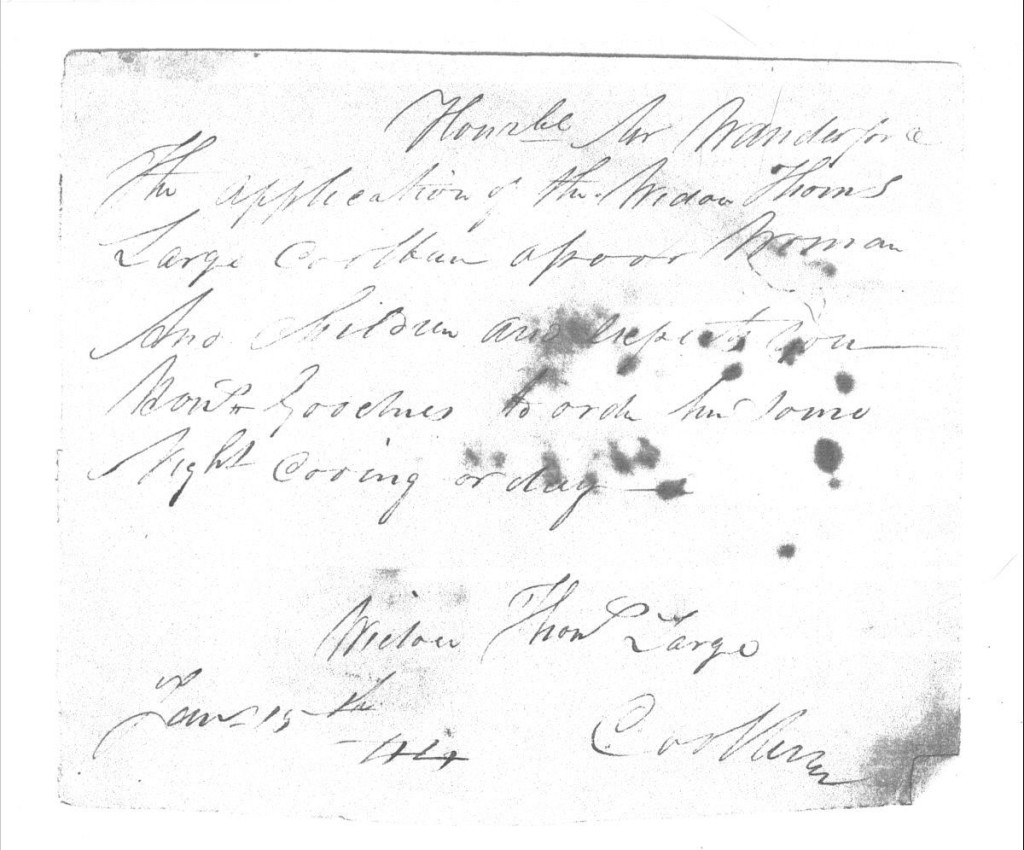 Honrble Sir Wanderforce
The application of the Widow Thoms
Large Coolkun a poor Woman
And Children and expects you
Honr Goodnes to order her some
Night Coving or day
Widow Thos Large
Jan 15th
Coolkun